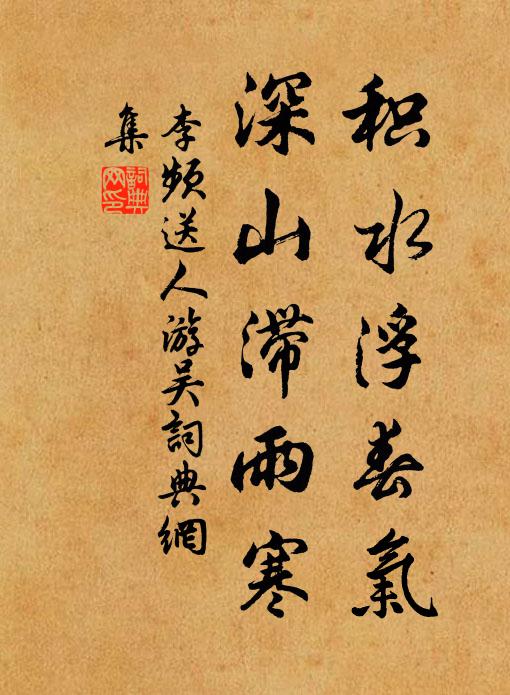 积水浮春氣
深山滞雨寒
李频送人游吴詞典網
集
詞典网印